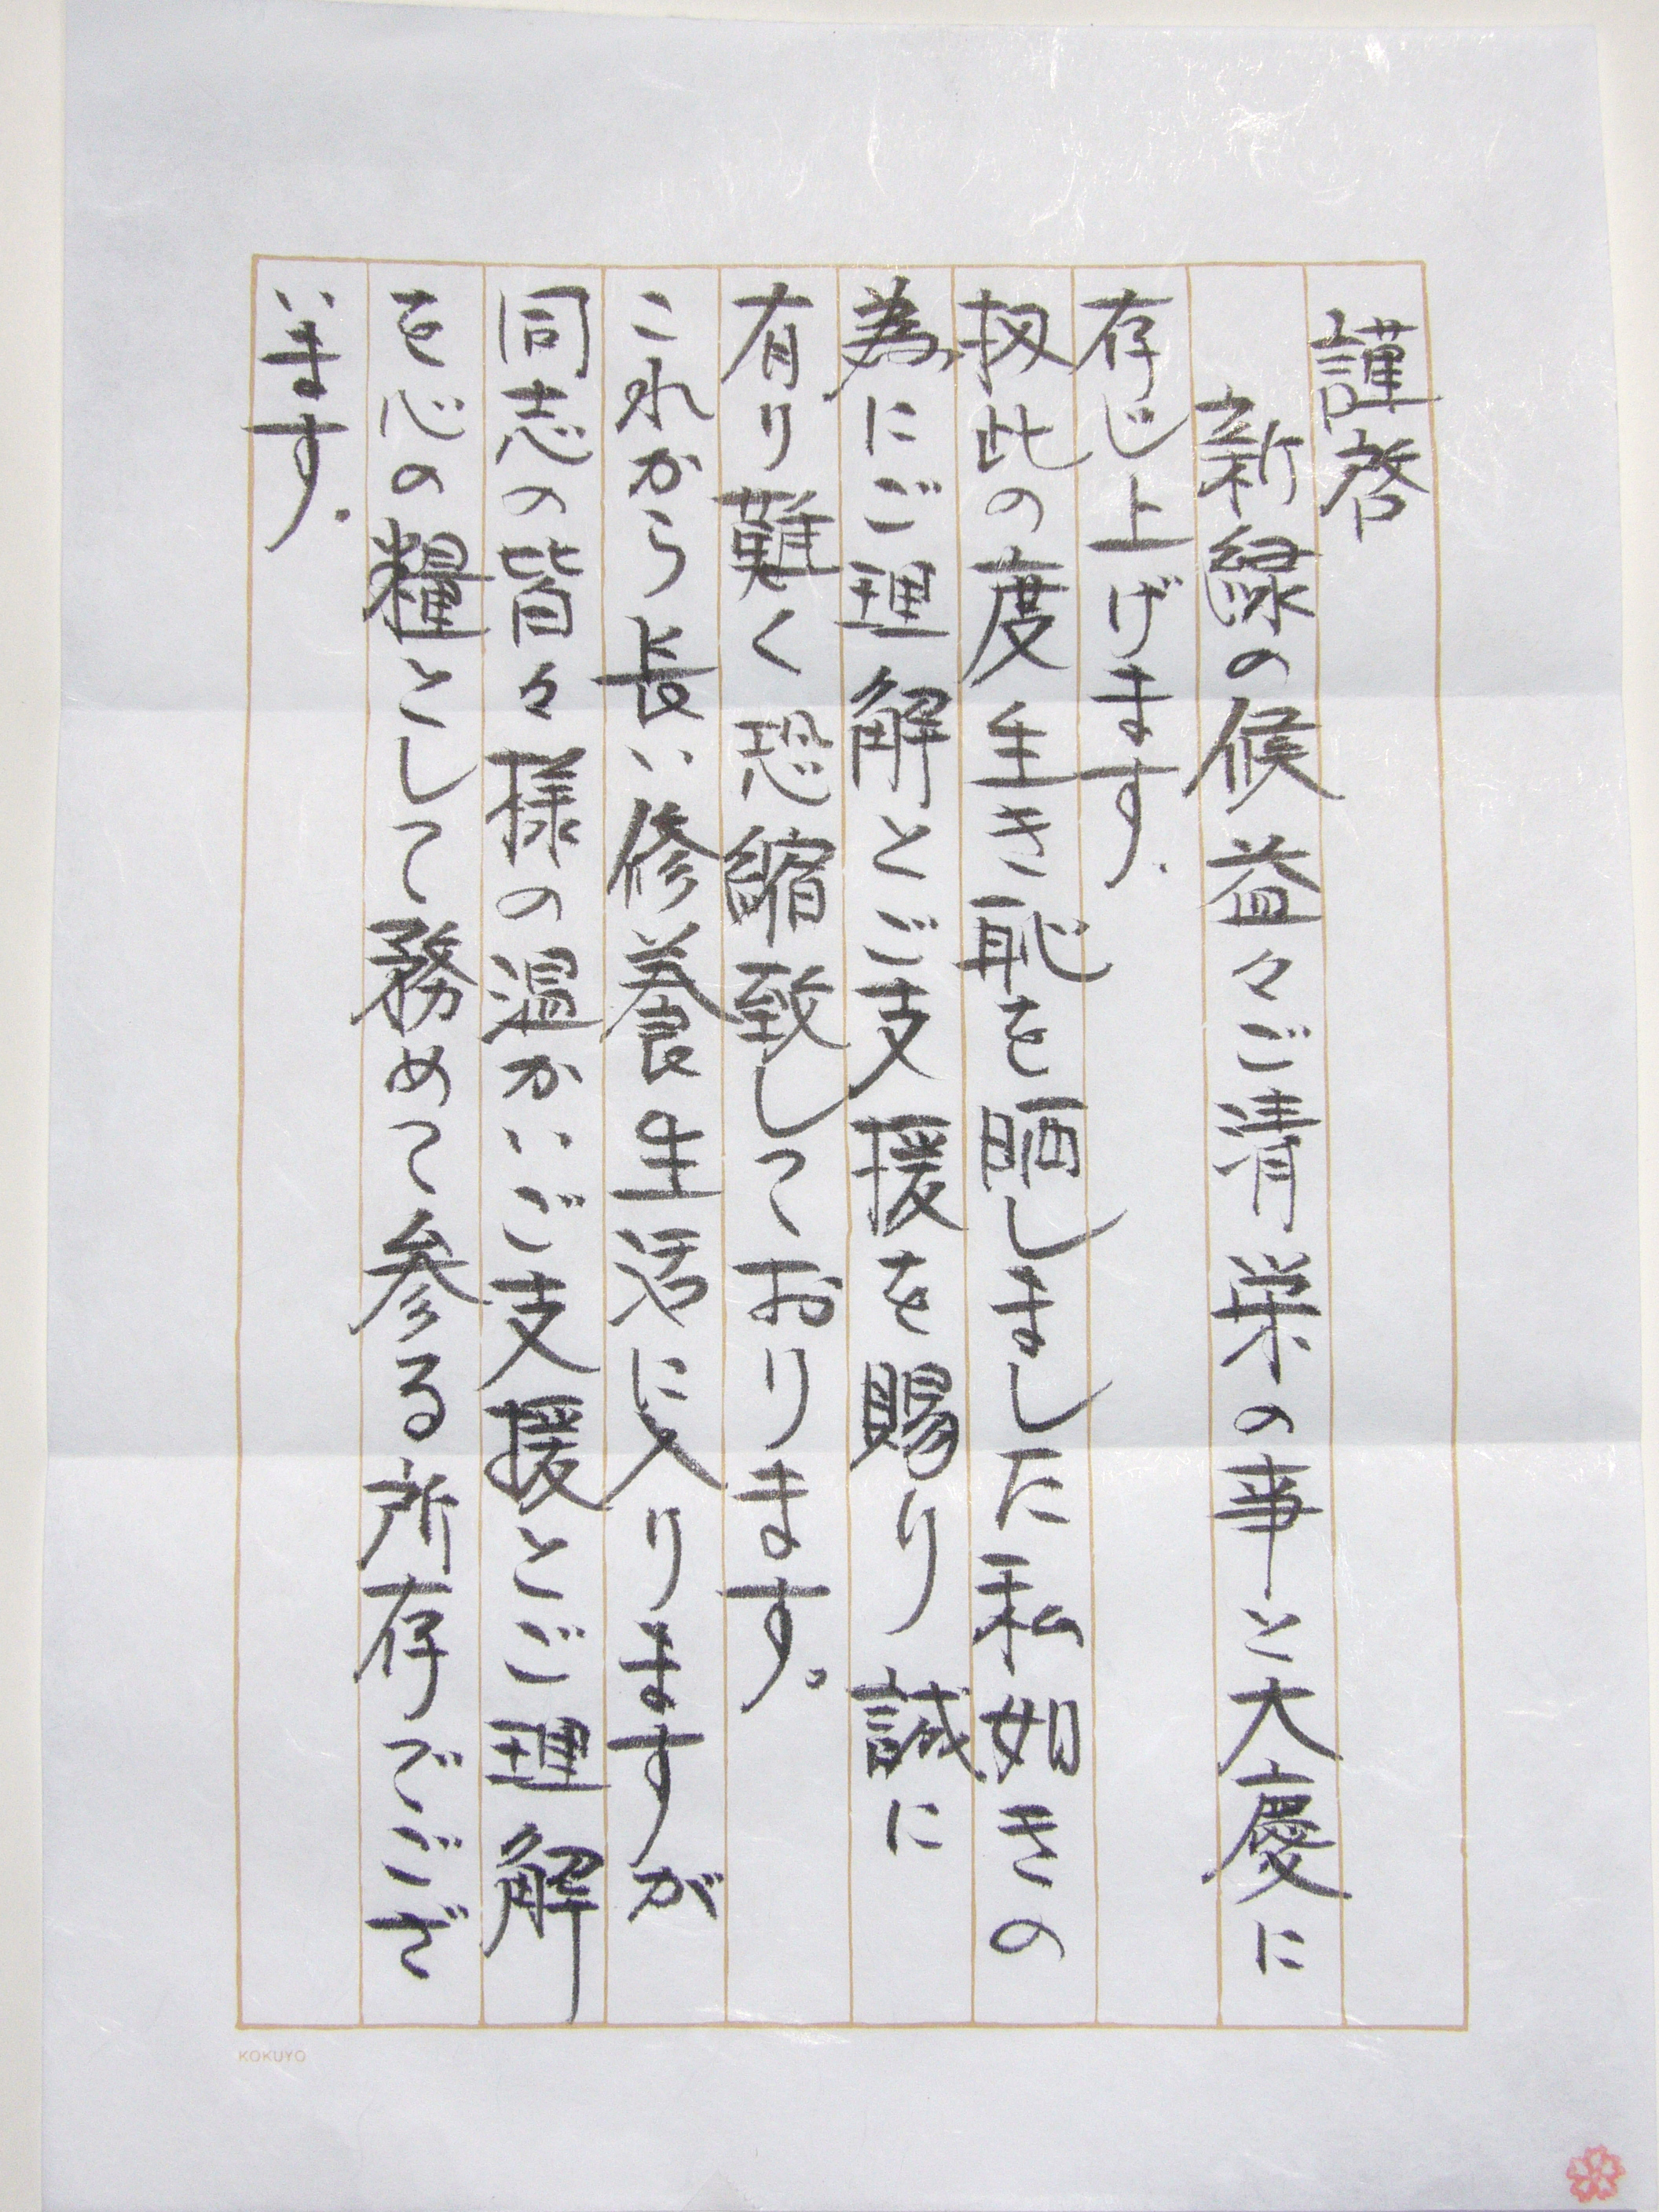 謹啓
新緑の候益々ご清栄の事と大慶に
存じ上げます.
扨此の度生き恥を晒しました私如きの
為にご理解とご支援を賜り誠に
有り難く恐縮致しております。
これから長い修養生活に入りますが
同志の皆々様の温かいご支援とご理解
を心の糧として務めて参る所存でござ
います.
KOKUYO